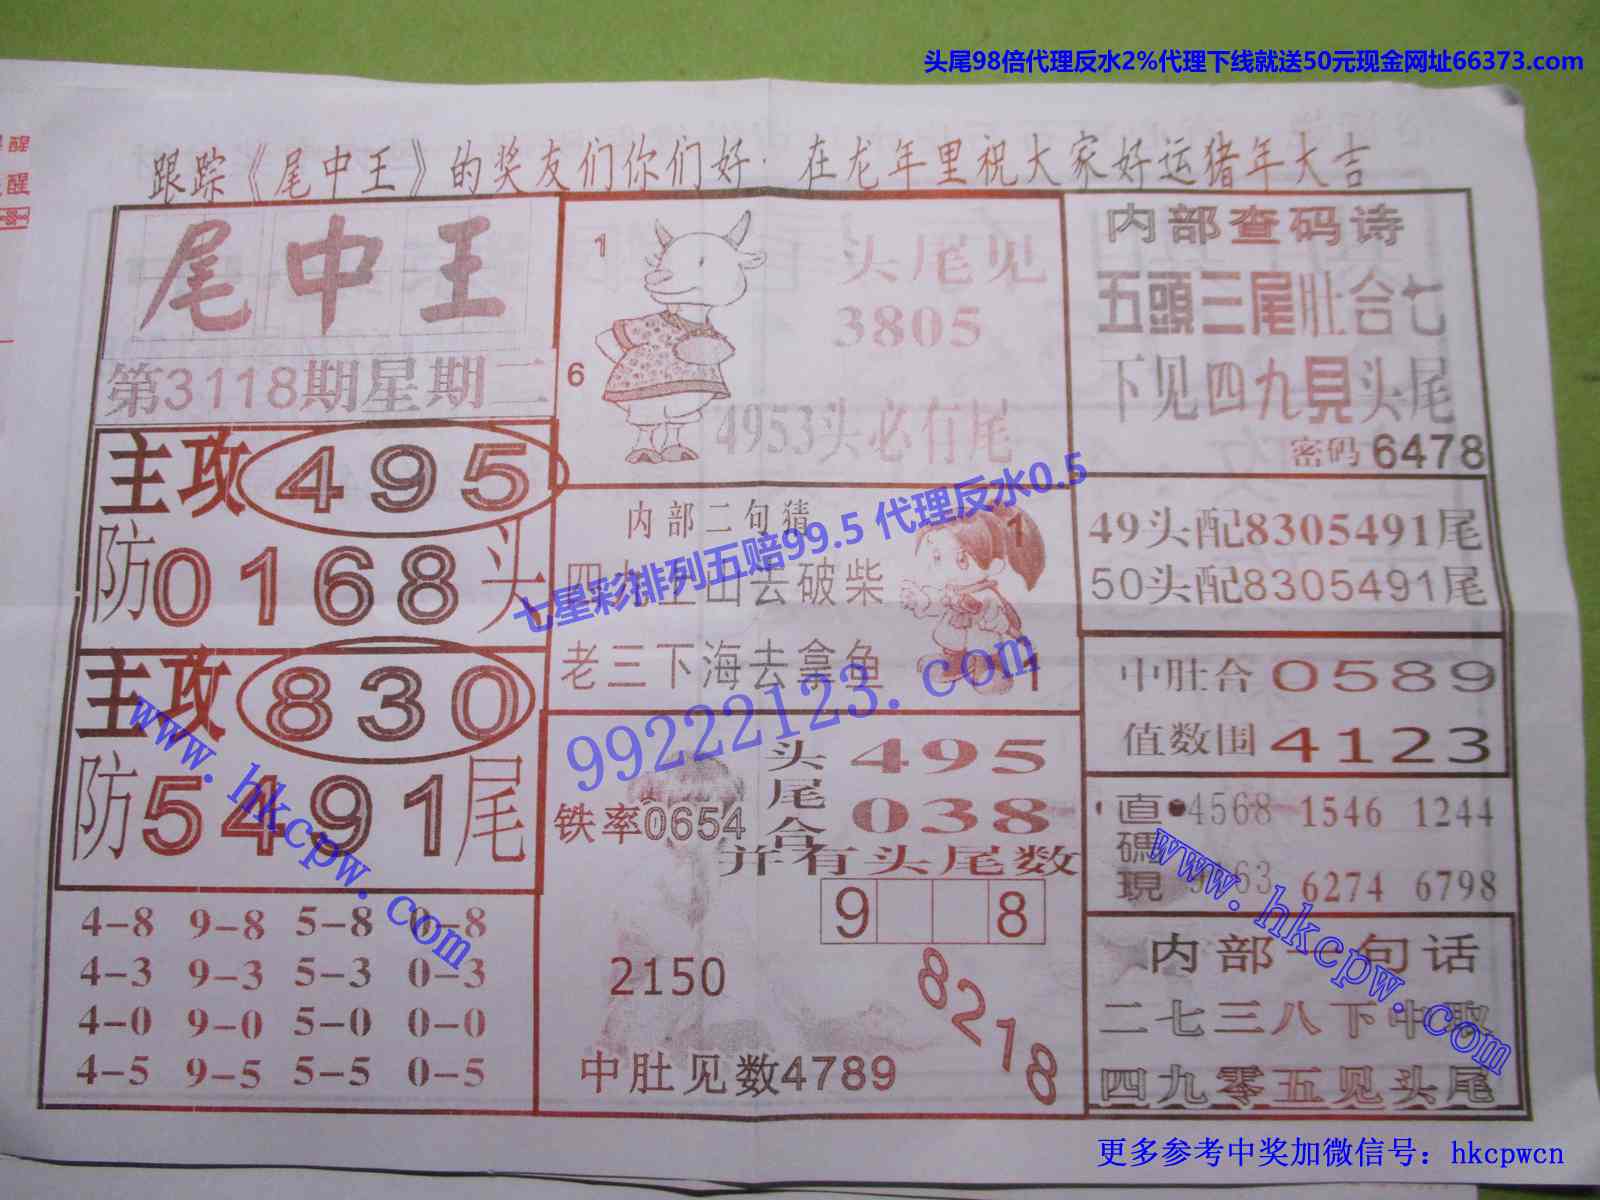 头尾98倍代理反水2%代理下线就送50元现金网址66373.com
醒
醒
跟踪《尾中王》的奖友们你们好·在龙年里祝大家好运猪年大吉
尾中王
第3118期星期二
主攻495
防0168头
主攻830
防5491尾
4-8 9-8 5-8 0-8
4-3 9-3 5-3 0-3
4-0 9-0 5-0 0-0
4-5 9-5 5-5 0-5
1
6
头尾见
3805
4953头必有尾
内部二句猜
四九上山去破柴
老三下海去拿鱼
1
1
铁率0654
头尾合
495
038
并有头尾数
9 8
2150
8218
中肚见数4789
内部查码诗
五頭三尾肚合七
下见四九見头尾
密码6478
49头配8305491尾
50头配8305491尾
中肚合0589
值数围4123
直碼現
4568 1546 1244
6274 6798
内部一句话
二七三八下中
四九零五见头尾
七星彩排列五赔99.5 代理反水0.5
99222123.com
www.hkcpw.com
www.hkcpw.com
更多参考中奖加微信号：hkcpwcn